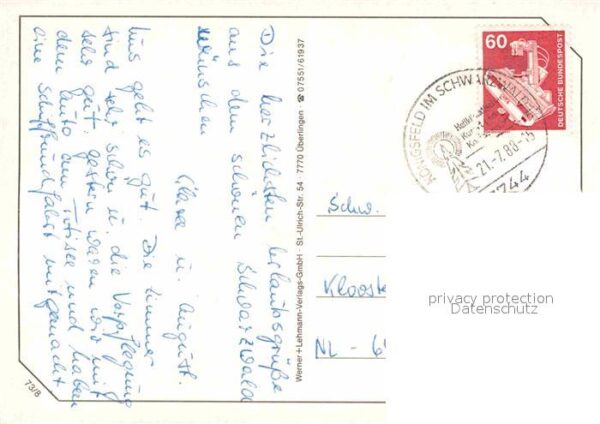 Die herzlichsten Urlaubsgrüße
aus dem schönen Schwarzwald
wünschen
Clara u. August.
Uns geht es gut. Die Zimmer
sind sehr schön u. die Verpflegung
sehr gut. gestern waren wir mit
dem Auto am Titisee und haben
eine Schiffrundfahrt mitgemacht
73/8
Werner+Lehmann-Verlags-GmbH · St.-Ulrich-Str. 54 · 7770 Überlingen ☎ 07551/61937
60
DEUTSCHE BUNDESPOST
KÖNIGSFELD IM SCHWARZWALD
21.-7.88-15
7744
Schw.
Klooste
NL - 6
privacy protection
Datenschutz